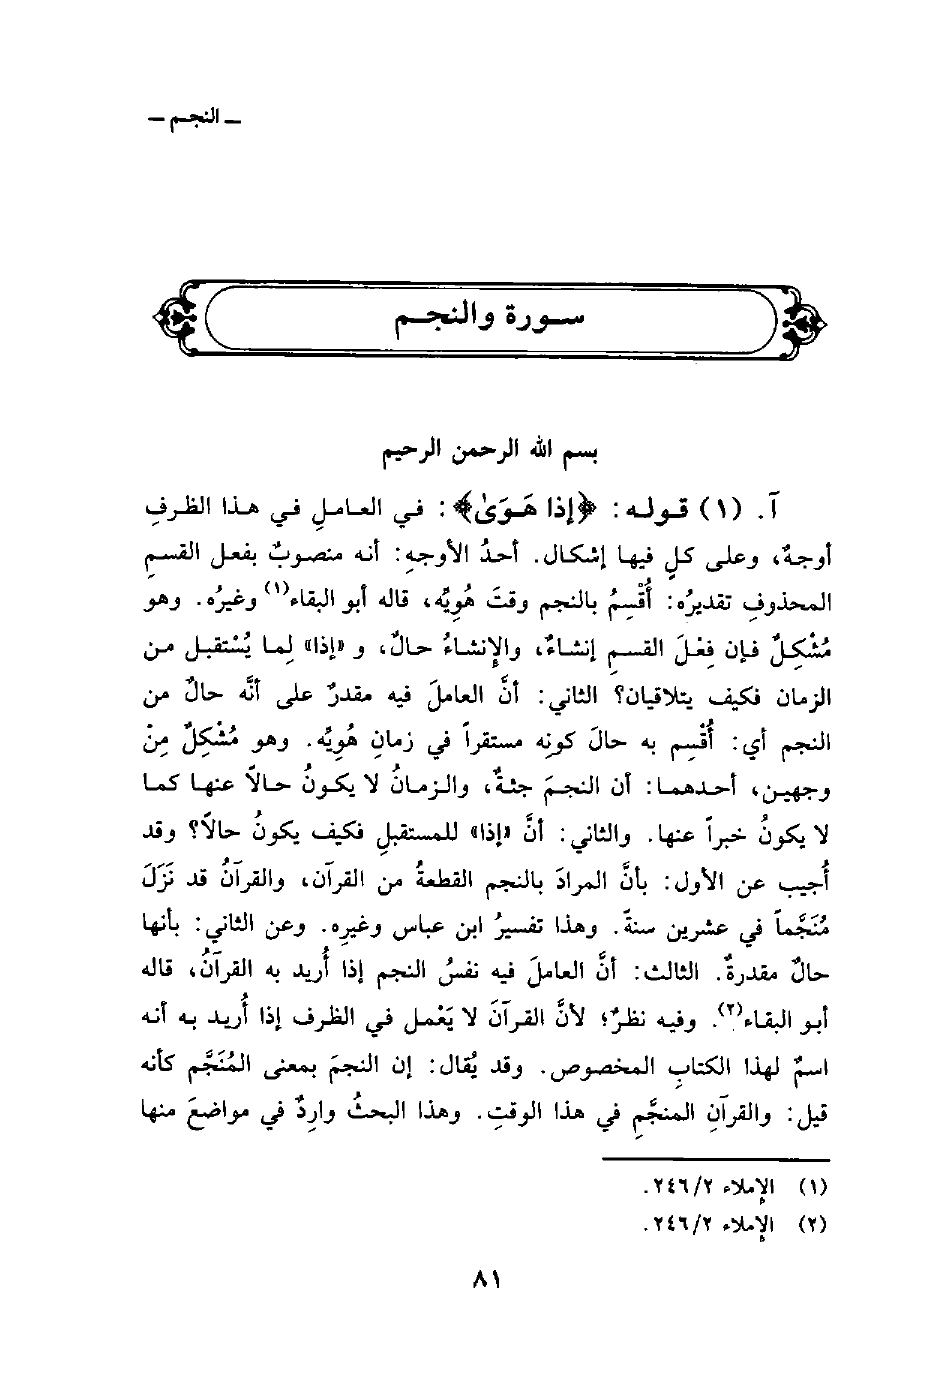 ـ النجـم ـ
سـورة والنجـم
بسم الله الرحمن الرحيم
آ. (١) قولـه: ﴿إذا هَـوَىٰ﴾: في العـامـلِ في هـذا الظرفِ
أوجهٌ، وعلى كلٍ فيها إشكال. أحدُ الأوجهِ: أنه منصوبٌ بفعل القسمِ
المحذوفِ تقديرُه: أُقْسِمُ بالنجم وقتَ هُوِيِّه، قاله أبو البقاء(١) وغيرُه. وهو
مُشْكِلٌ فإن فِعْلَ القسمِ إنشاءٌ، والإِنشاءُ حالٌ، و «إذا» لِما يُسْتقبل من
الزمان فكيف يتلاقيان؟ الثاني: أنَّ العاملَ فيه مقدرٌ على أنَّه حالٌ من
النجم أي: أُقْسِم به حالَ كونِه مستقراً في زمانِ هُوِيِّه. وهو مُشْكِلٌ مِنْ
وجهين، أحدهما: أن النجمَ جثةٌ، والزمانُ لا يكونُ حالاً عنها كما
لا يكونُ خبراً عنها. والثاني: أنَّ «إذا» للمستقبلِ فكيف يكونُ حالاً؟ وقد
أُجيب عن الأول: بأنَّ المرادَ بالنجم القطعةُ من القرآن، والقرآنُ قد نَزَلَ
مُنَجَّماً في عشرين سنةً. وهذا تفسيرُ ابن عباس وغيرِه. وعن الثاني: بأنها
حالٌ مقدرةٌ. الثالث: أنَّ العاملَ فيه نفسُ النجم إذا أُريد به القرآنُ، قاله
أبو البقاء(٢). وفيه نظرٌ؛ لأنَّ القرآنَ لا يَعْمل في الظرف إذا أُريـد بـه أنه
اسمٌ لهذا الكتابِ المخصوص. وقد يُقال: إن النجمَ بمعنى المُنَجَّم كأنه
قيل: والقرآنِ المنجَّمِ في هذا الوقتِ. وهذا البحثُ وارِدٌ في مواضعَ منها
(١) الإِملاء ٢٤٦/٢.
(٢) الإِملاء ٢٤٦/٢.
٨١